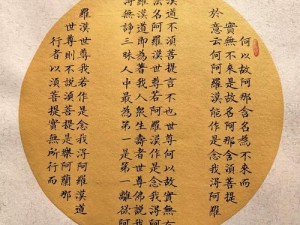 何以故阿那含名為不來而
實無不來是故名阿那含須菩提
於意云何阿羅漢能作是念我得阿羅
漢道不須菩提言不也世尊何以故實無有
法名阿羅漢世尊若阿羅漢作是念我得阿
羅漢道即為著我人眾生壽者世尊佛說我得
無諍三昧人中最為第一是第一離欲阿
羅漢世尊我若作是念我得阿羅漢道
世尊則不說須菩提是樂阿蘭那
行者以須菩提實無所行而